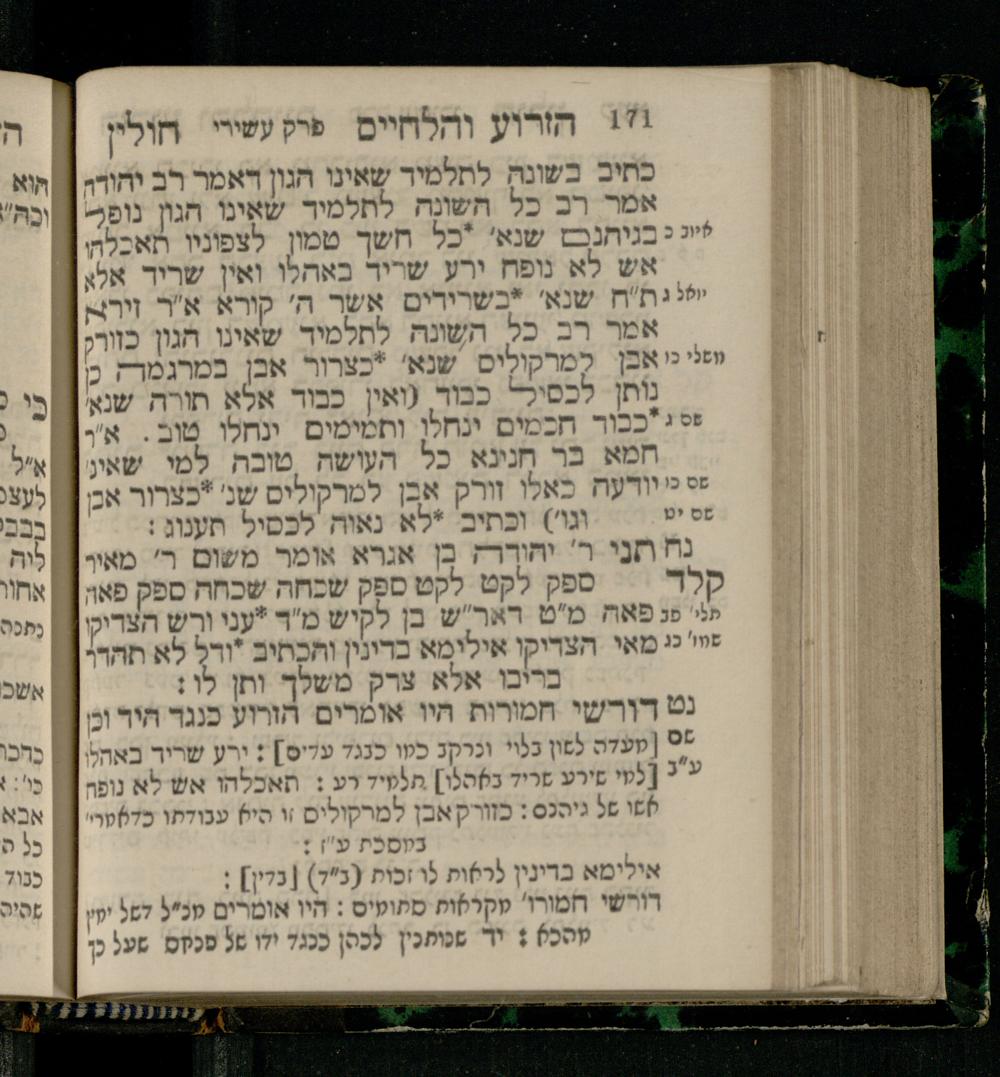 171 הזרוע והלחיים פרק עשירי חולין
כתיב בשונה לתלמיד שאינו הגון דאמר רב יהודה
אמר רב כל השונה לתלמיד שאינו הגון נופל
איוב כ בגיהנם שנא' *כל חשך טמון לצפוניו תאכלהו
אש לא נופח ירע שריד באהלו ואין שריד אלא
יואל ג ת"ח שנא' *בשרידים אשר ה' קורא א"ר זירא
אמר רב כל השונה לתלמיד שאינו הגון כזורק
משלי כו אבן למרקולים שנא' *כצרור אבן במרגמה כן
נותן לכסיל כבוד (ואין כבוד אלא תורה שנא'
שם ג *כבוד חכמים ינחלו ותמימים ינחלו טוב. א"ר
חמא בר חנינא כל העושה טובה למי שאינו
שם כו יודעה כאלו זורק אבן למרקולים שנ' *כצרור אבן
שם יט וגו') וכתיב *לא נאוה לכסיל תענוג:
נח תני ר' יהודה בן אגרא אומר משום ר' מאיר
קלד ספק לקט לקט ספק שכחה שכחה ספק פאה
תלי' פב פאה מ"ט דאר"ש בן לקיש מ"ד *עני ורש הצדיקו
שמו' כג מאי הצדיקו אילימא בדינין והכתיב *ודל לא תהדר
בריבו אלא צדק משלך ותן לו:
נט דורשי חמורות היו אומרים הזרוע כנגד היד וכן
שם [מעדה לשון בלוי ונרקב כמו כבגד עדים]: ירע שריד באהלו
ע"ב [למי שירע שריד באהלו] תלמיד רע: תאכלהו אש לא נופח
אשו של גיהנם: כזורק אבן למרקולים זו היא עבודתו כדאמרי'
במסכת ע"ז:
אילימא בדינין לראות לו זכות (ב"ד) [בדין]:
דורשי חמורו' מקראות סתומים: היו אומרים מכ"ל דשל ימין
מהכא: יד שנותנין לכהן כנגד ידו של פנחס שעל כך
הוא
וכה"א
כי
א"ל
לעצמ
ליה